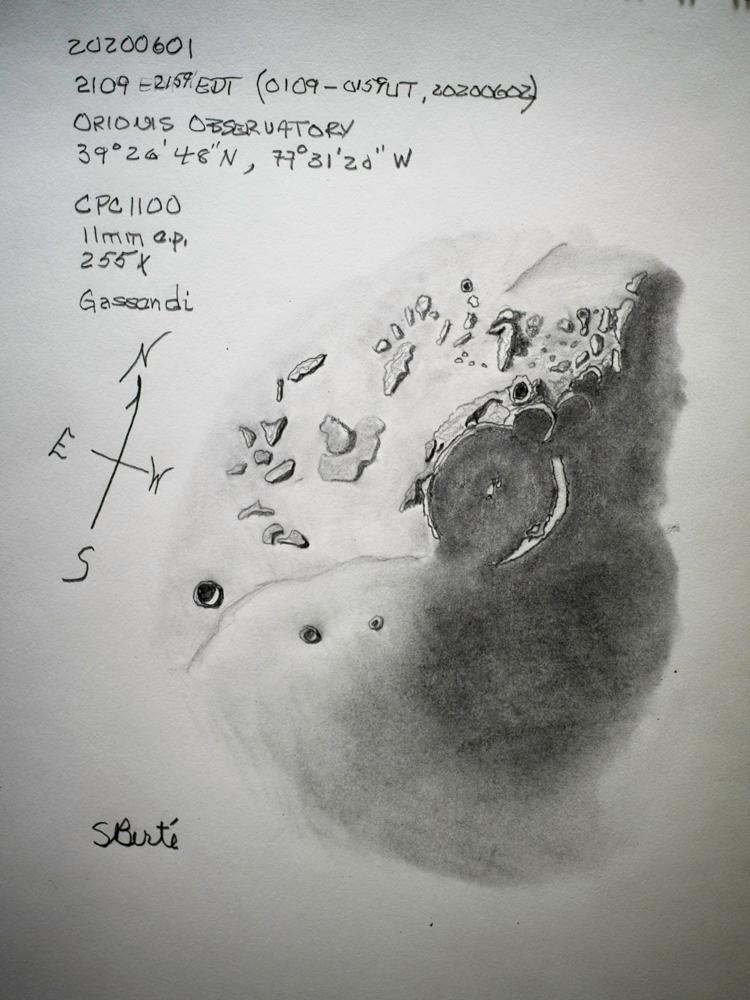 20200601
2109-2159 EDT (0109-0159UT, 20200602)
ORIONIS OBSERVATORY
39°26'48"N, 77°31'20" W
CPC1100
11mm e.p.
255X
Gassendi
N
E
W
S
SBerté